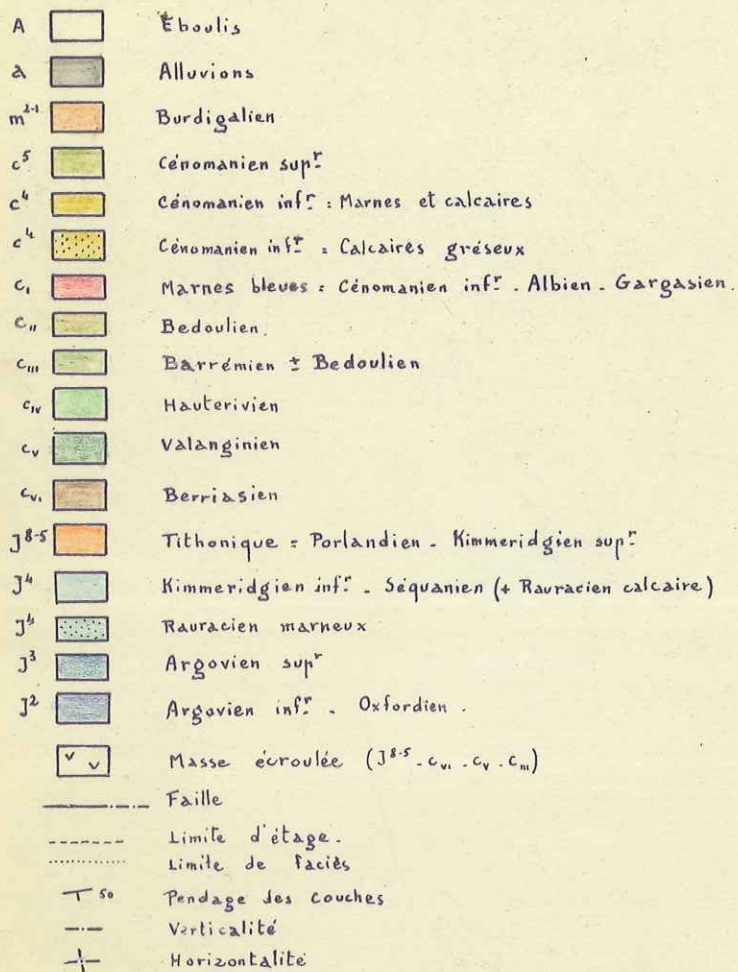 A Eboulis
a Alluvions
m²⁻¹ Burdigalien
c⁵ Cénomanien supʳ
c⁴ Cénomanien infʳ : Marnes et calcaires
c⁴ Cénomanien infʳ : Calcaires gréseux
c₁ Marnes bleues : Cénomanien infʳ - Albien - Gargasien.
c₁₁ Bedoulien.
c₁₁₁ Barrémien ± Bedoulien
c_IV Hauterivien
c_V Valanginien
c_VI Berriasien
J⁸⁻⁵ Tithonique = Porlandien - Kimmeridgien supʳ
J⁴ Kimmeridgien infʳ - Séquanien (+ Rauracien calcaire)
J⁴ Rauracien marneux
J³ Argovien supʳ
J² Argovien infʳ - Oxfordien.
v v Masse écroulée (J⁸⁻⁵ - c_VI - c_V - c_III)
Faille
Limite d'étage.
Limite de faciès
50 Pendage des couches
Verticalité
Horizontalité